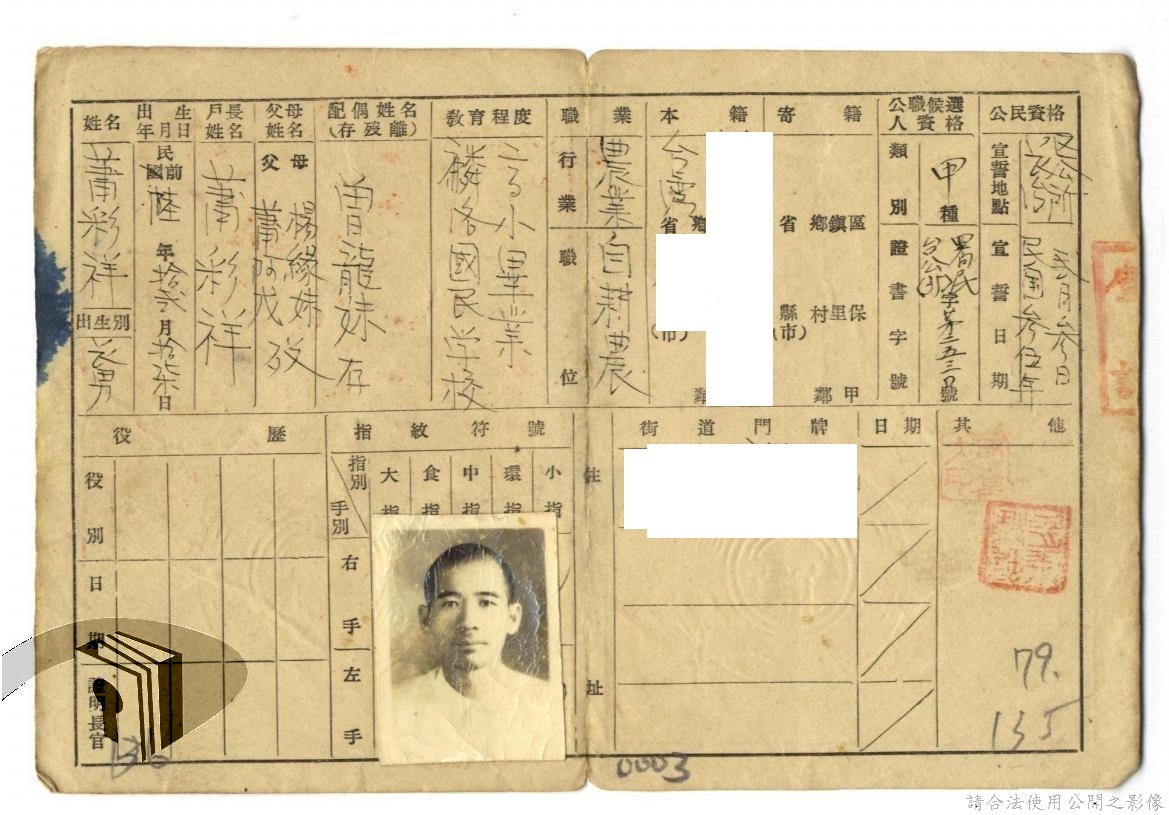 姓名
蕭彩祥
出生別
長男
出生年月日
民國前陸年拾弍月拾柒日
戶長姓名
蕭彩祥
父母姓名
父 母
蕭阿戊
楊緣妹 歿
配偶姓名
(存歿離)
曾龍妹 存
教育程度
高小畢業
麟洛國民学校
職業
行業
職位
農業
自耕農
本籍
台灣
省
鄉
(市)
鄰
寄籍
省 鄉鎮區
縣(市) 村里保
鄰 甲
公職候選人資格
類別
甲種
證書字號
字第
號
公民資格
宣誓地點
公所
宣誓日期
民國叁伍年
叁月叁日
役歷
役別
日期
證明長官
指紋符號
指別
手別
大指
食指
中指
環指
小指
右手
左手
住址
街道門牌
日期
其他
79.
135
0003
請合法使用公開之影像